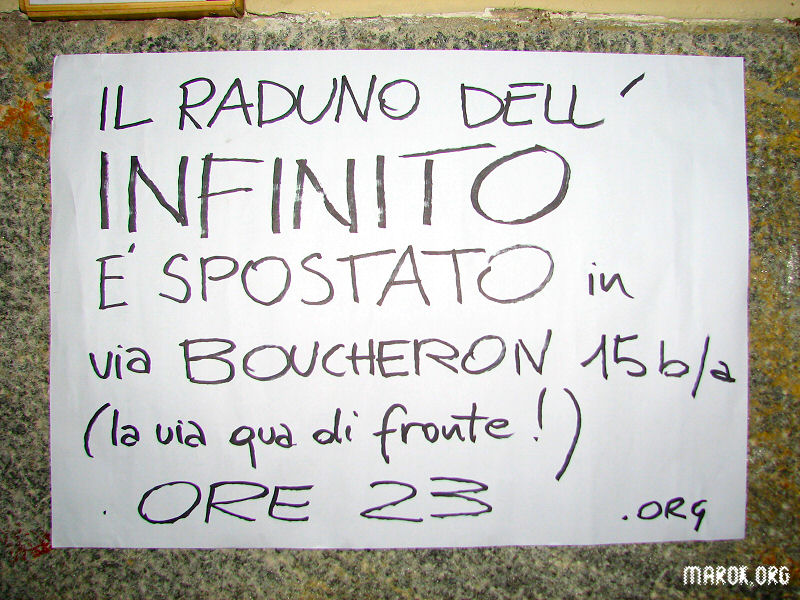 IL RADUNO DELL'
INFINITO
E' SPOSTATO in
via BOUCHERON 15b/a
(la via qua di fronte!)
. ORE 23
.ORG
MAROK.ORG